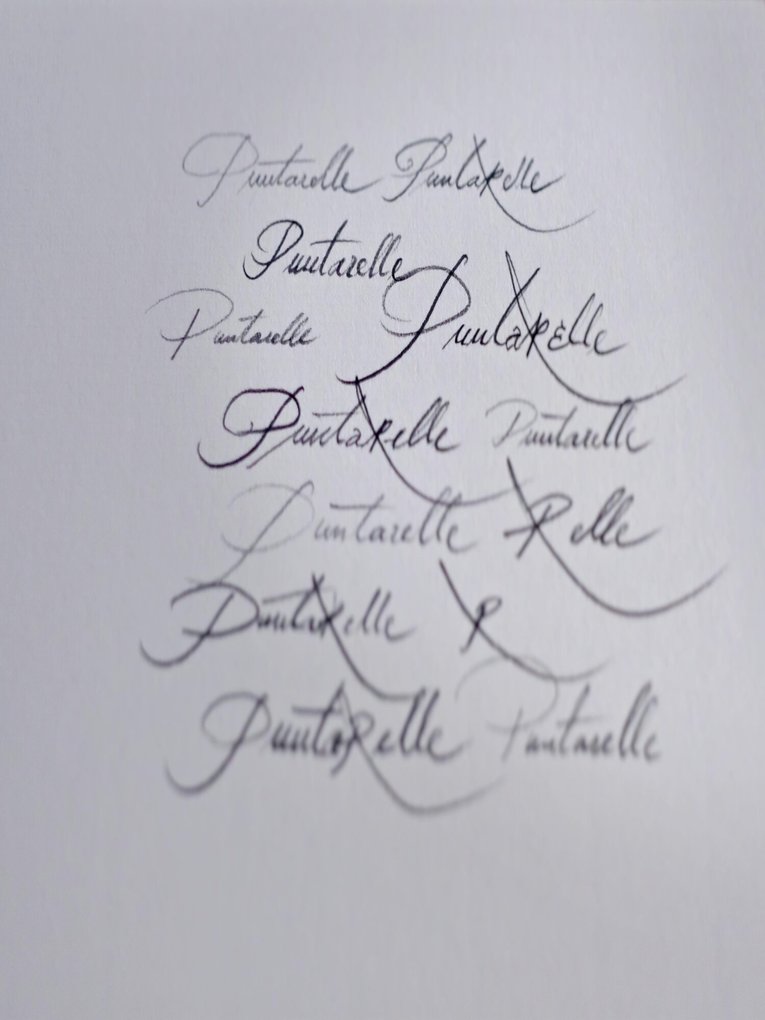 Puntarelle PuntaRelle
Puntarelle
Puntarelle PuntaRelle
PuntaRelle Puntarelle
Puntarelle Relle
PuntaRelle R
PuntaRelle Puntarelle